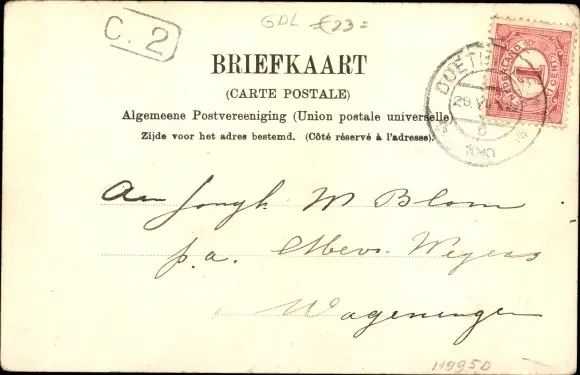 C. 2
GDL €23=
BRIEFKAART
(CARTE POSTALE)
Algemeene Postvereeniging (Union postale universelle)
Zijde voor het adres bestemd. (Côté réservé à l'adresse).
NEDERLAND
1
CENT
DOETI
29
Aan Jongh. W Blom
p.a. Mevr. Wegens
Wageningen
11995D